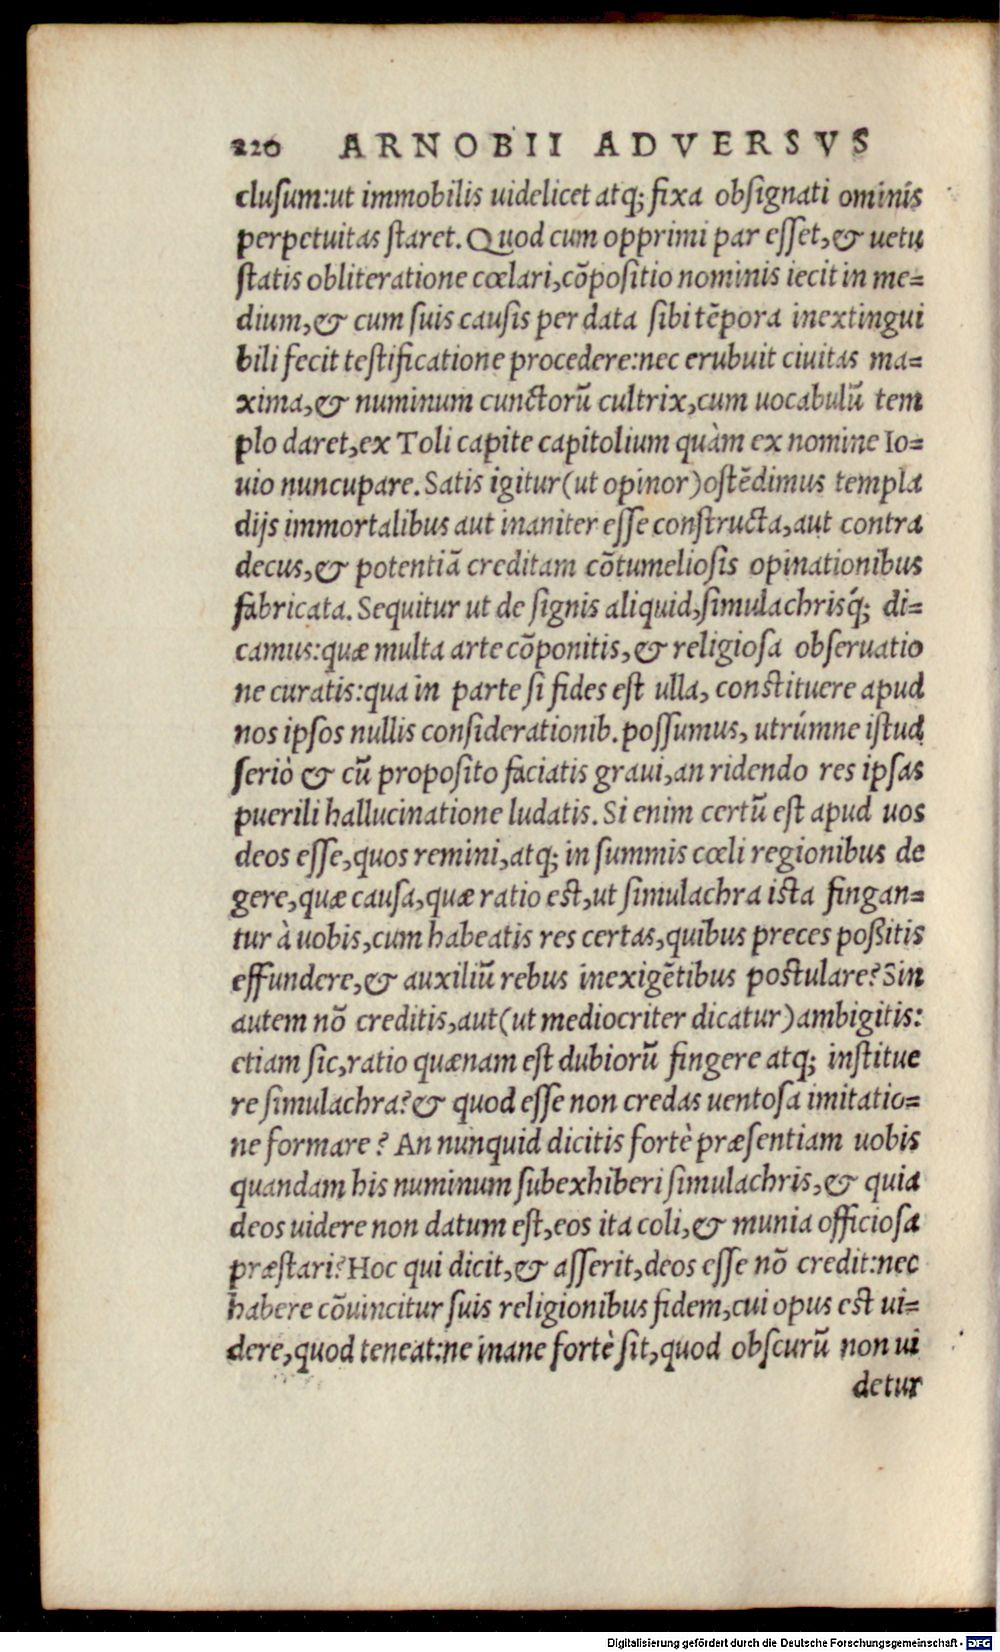 220 ARNOBII ADVERSVS
clusum:ut immobilis uidelicet atq; fixa obsignati ominis
perpetuitas staret. Quod cum opprimi par esset, & uetu
statis obliteratione cœlari, cõpositio nominis iecit in me=
dium, & cum suis causis per data sibi tẽpora inextingui
bili fecit testificatione procedere:nec erubuit ciuitas ma=
xima, & numinum cunctorũ cultrix, cum uocabulũ tem
plo daret, ex Toli capite capitolium quàm ex nomine Io=
uio nuncupare. Satis igitur (ut opinor) ostẽdimus templa
dijs immortalibus aut inaniter esse constructa, aut contra
decus, & potentiã creditam cõtumeliosis opinationibus
fabricata. Sequitur ut de signis aliquid, simulachrisq́; di=
camus:quæ multa arte cõponitis, & religiosa obseruatio
ne curatis:qua in parte si fides est ulla, constituere apud
nos ipsos nullis considerationib. possumus, utrúmne istud
seriò & cũ proposito faciatis graui, an ridendo res ipsas
puerili hallucinatione ludatis. Si enim certũ est apud uos
deos esse, quos remini, atq; in summis cœli regionibus de
gere, quæ causa, quæ ratio est, ut simulachra ista fingan=
tur à uobis, cum habeatis res certas, quibus preces poßitis
effundere, & auxiliũ rebus inexigẽtibus postulare? Sin
autem nõ creditis, aut (ut mediocriter dicatur) ambigitis:
etiam sic, ratio quænam est dubiorũ fingere atq; institue
re simulachra? & quod esse non credas uentosa imitatio=
ne formare? An nunquid dicitis fortè præsentiam uobis
quandam his numinum subexhiberi simulachris, & quia
deos uidere non datum est, eos ita coli, & munia officiosa
præstari? Hoc qui dicit, & asserit, deos esse nõ credit:nec
habere cõuincitur suis religionibus fidem, cui opus est ui=
dere, quod teneat:ne inane fortè sit, quod obscurũ non ui
detur
Digitalisierung gefördert durch die Deutsche Forschungsgemeinschaft - DFG